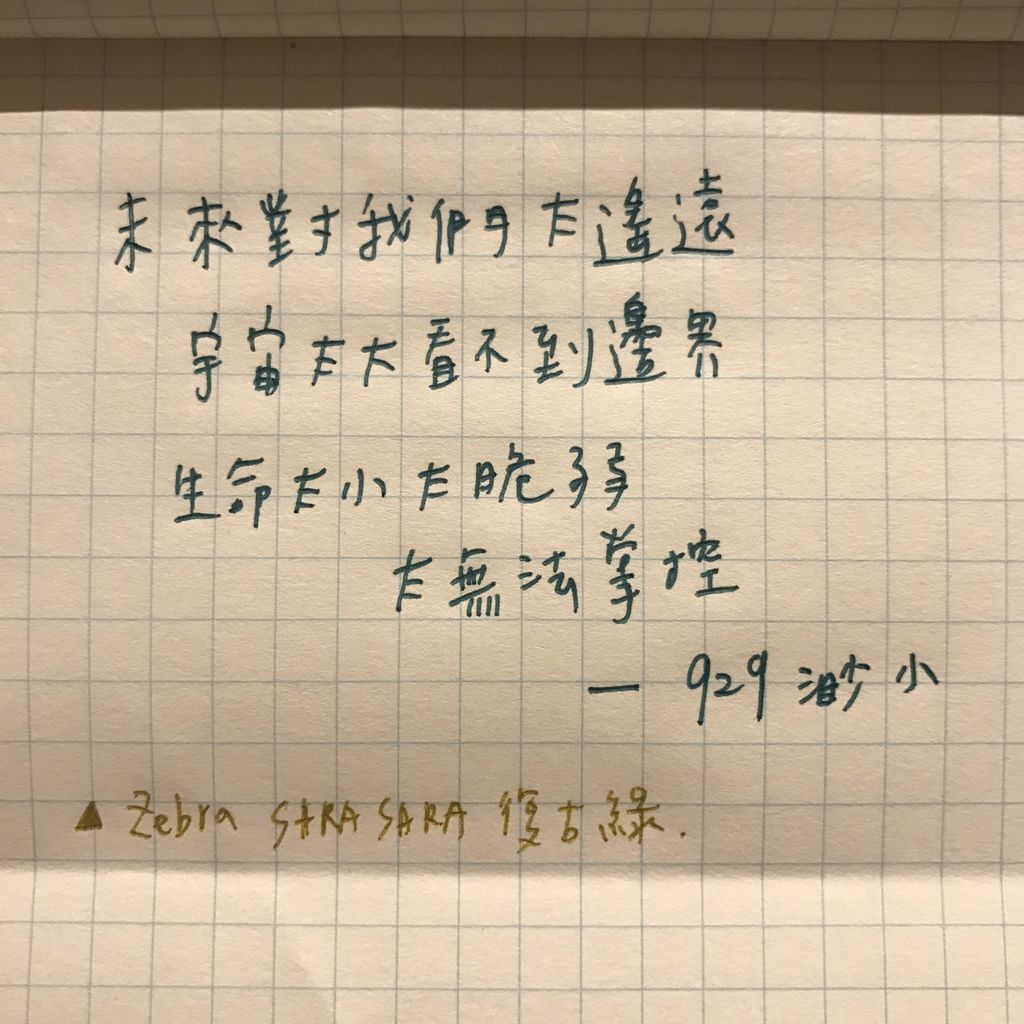 未來對我們太遙遠
宇宙太大看不到邊界
生命太小太脆弱
太無法掌控
— 929 渺小
▲ Zebra SARASARA 復古綠.